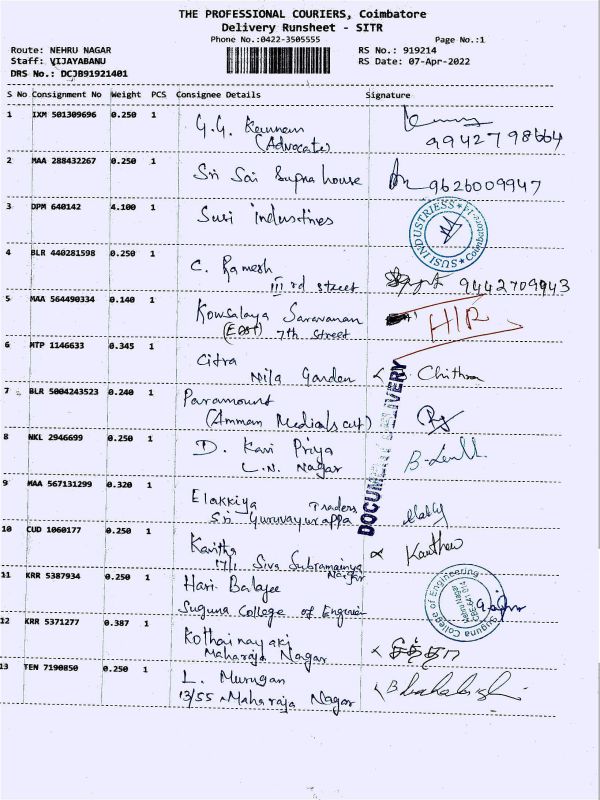 THE PROFESSIONAL COURIERS, Coimbatore
Delivery Runsheet - SITR
Phone No.:0422-3505555 Page No.:1
Route: NEHRU NAGAR RS No.: 919214
Staff: VIJAYABANU RS Date: 07-Apr-2022
DRS No.: DCJB91921401
S No Consignment No Weight PCS Consignee Details Signature
1 IXM 501309696 0.250 1 G.G. Kannan
(Advocate) 9942798664
2 MAA 288432267 0.250 1 Sri Sai Supra house 9626009947
3 DPM 640142 4.100 1 Susi industries
SUSI INDUSTRIESS Coimbatore-14
4 BLR 440281598 0.250 1 C. Ramesh
III rd street 9442709943
5 MAA 564490334 0.140 1 Kowsalaya Saravanan
(East) 7th Street H/R
6 MTP 1146633 0.345 1 Citra
Nila Garden Chithra
7 BLR 5004243523 0.240 1 Paramount
(Amman Medicals cut)
8 NKL 2946699 0.250 1 D. Kavi Priya
L.N. Nagar
DOCUMENT DELIVERY
9 MAA 567131299 0.320 1 Elakkiya Traders
Sri Guruvayurappa
10 CUD 1060177 0.250 1 Kavitha
17/1 Siva Subramaniya
Nagar
11 KRR 5387934 0.250 1 Hari Balajee
Suguna College of Engineer
Suguna College of Engineering
Nehru Nagar
CBE-641 014
12 KRR 5371277 0.387 1 Kothainayaki
Maharaja Nagar
13 TEN 7190850 0.250 1 L. Murugan
13/55 Maharaja Nagar